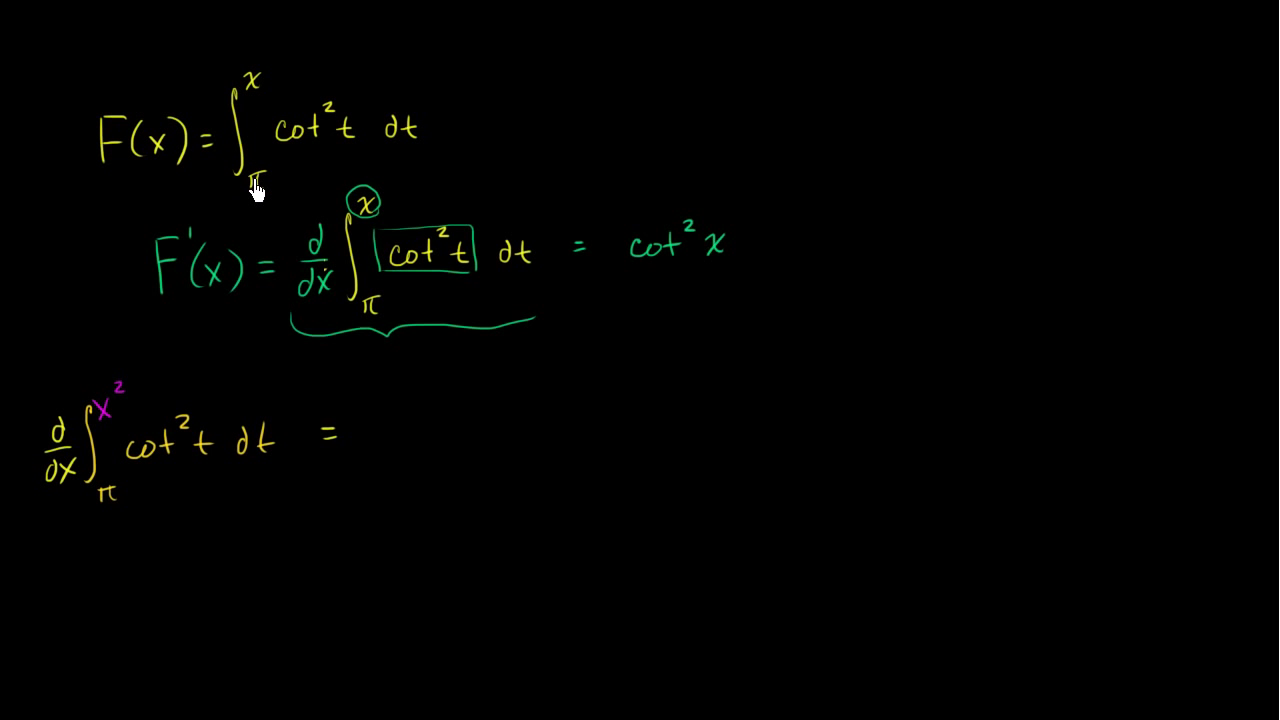 F(x) = ∫_π^x cot² t dt
F'(x) = d/dx ∫_π^x cot² t dt = cot² x
d/dx ∫_π^x² cot² t dt =